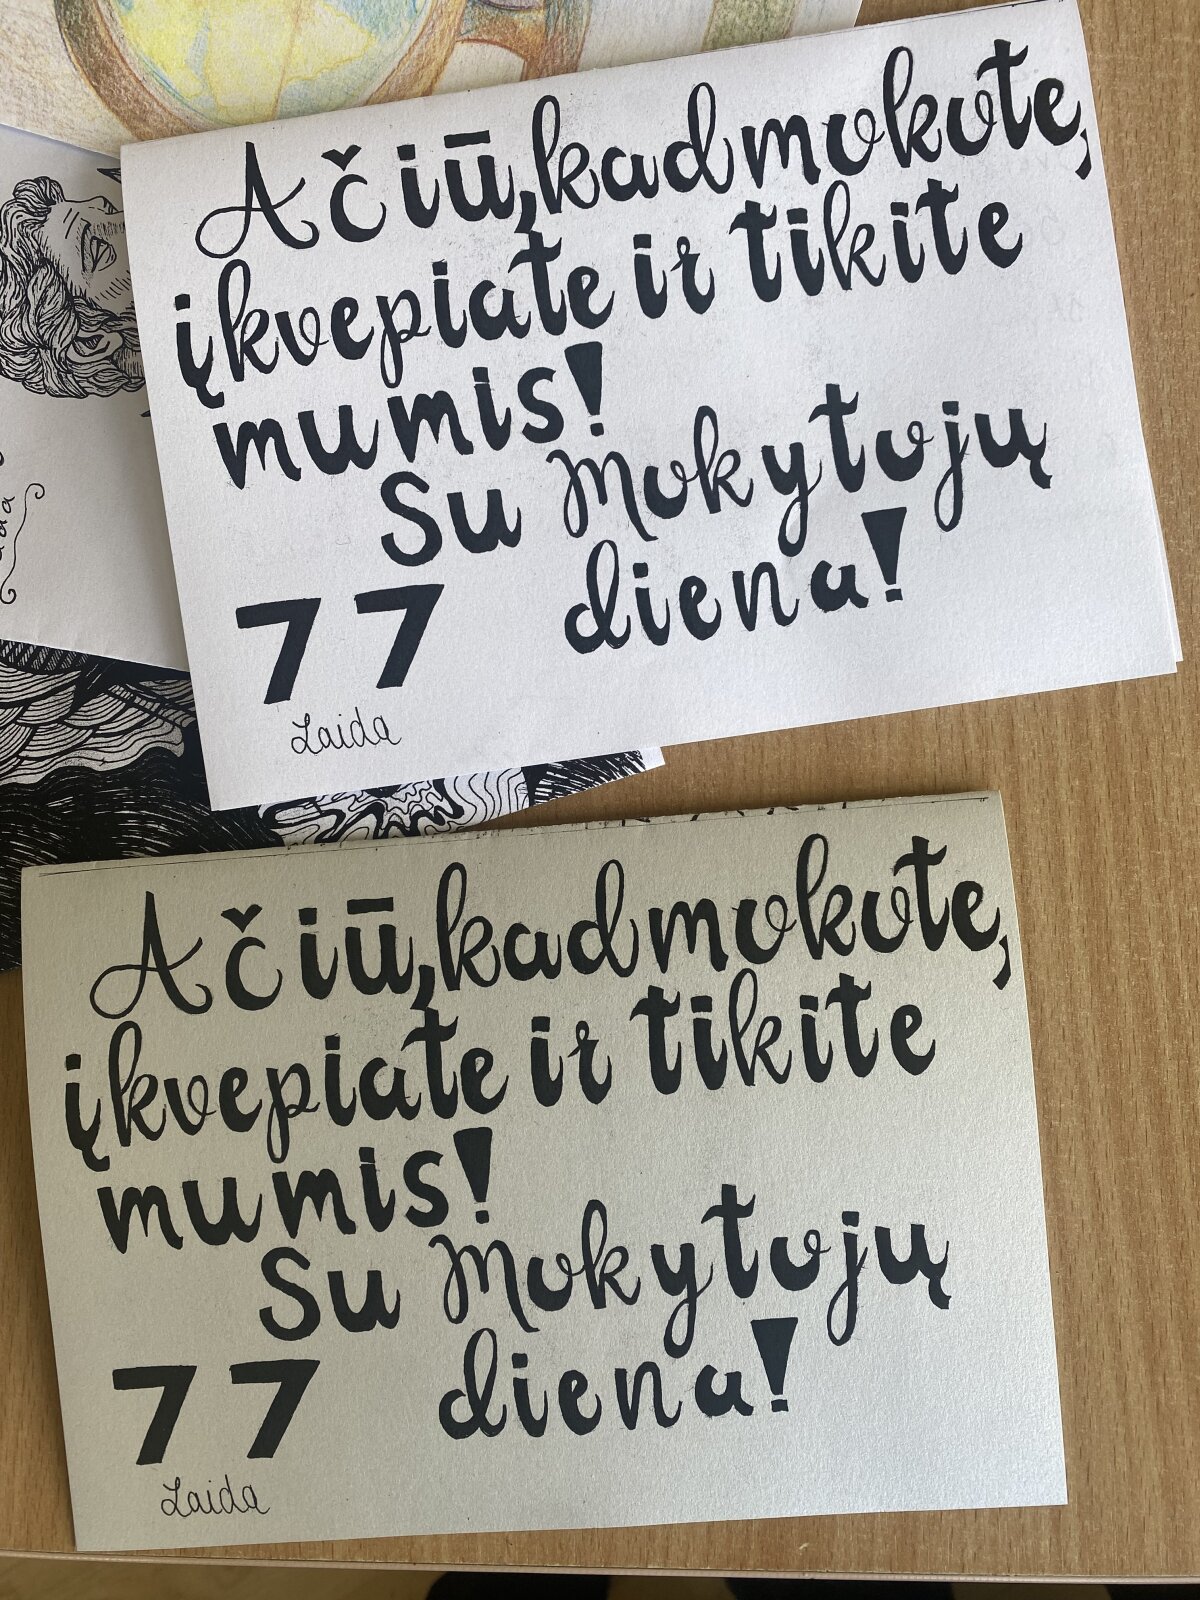 Ačiū, kad mokote,
įkvepiate ir tikite
mumis!
Su Mokytojų
diena!
77
Laida
Ačiū, kad mokote,
įkvepiate ir tikite
mumis!
Su Mokytojų
diena!
77
Laida